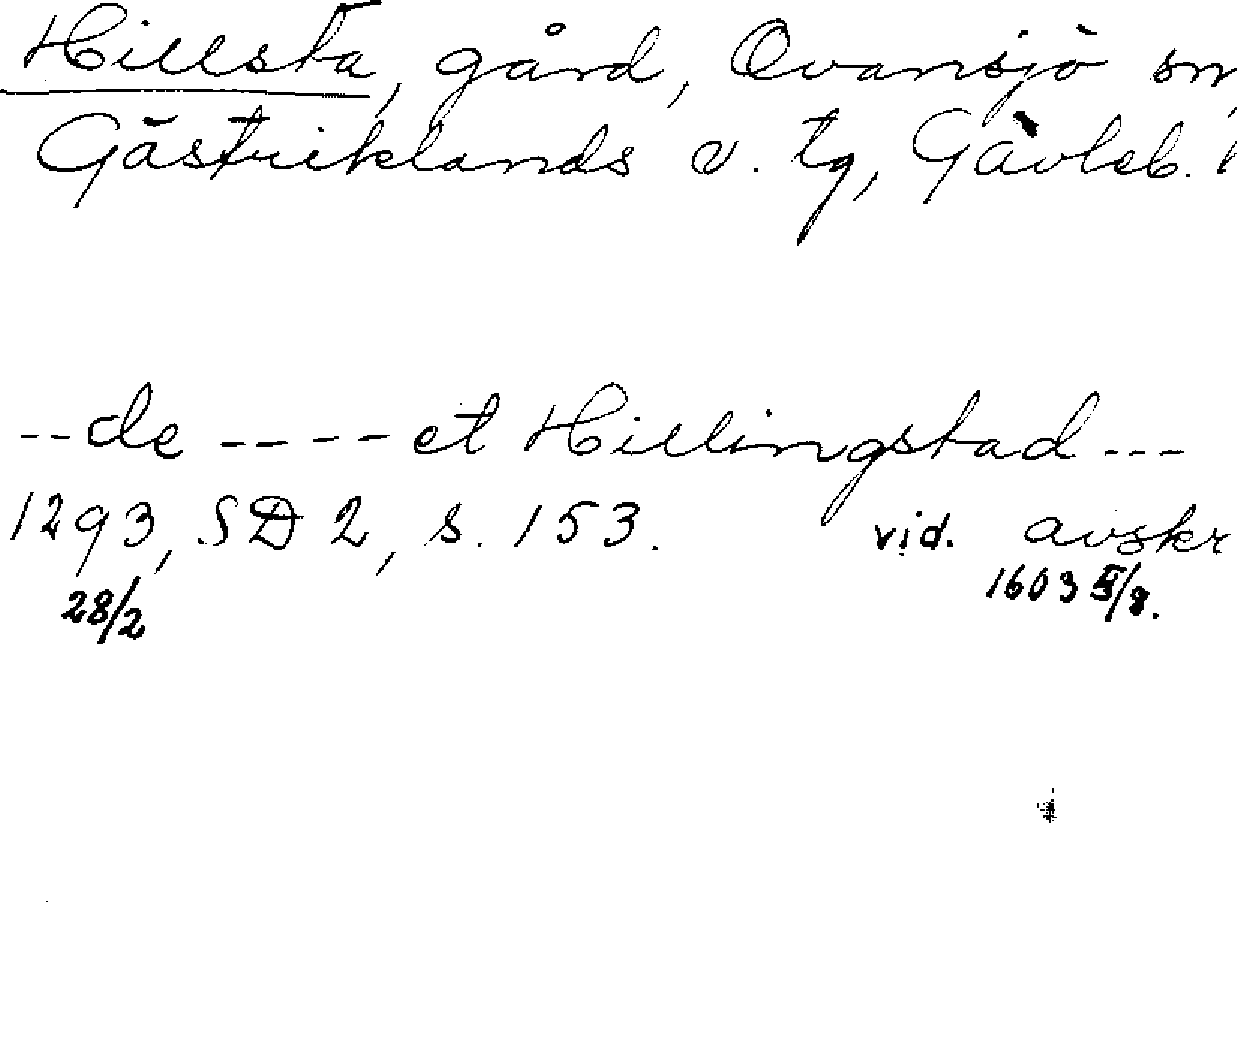 Hillsta, gård, Ovansjö sn,
Gästriklands v. tg, Gävleb.
--de ---- et Hillingstad ---
1293, SD 2, s. 153. vid. avskr
28/2 1603